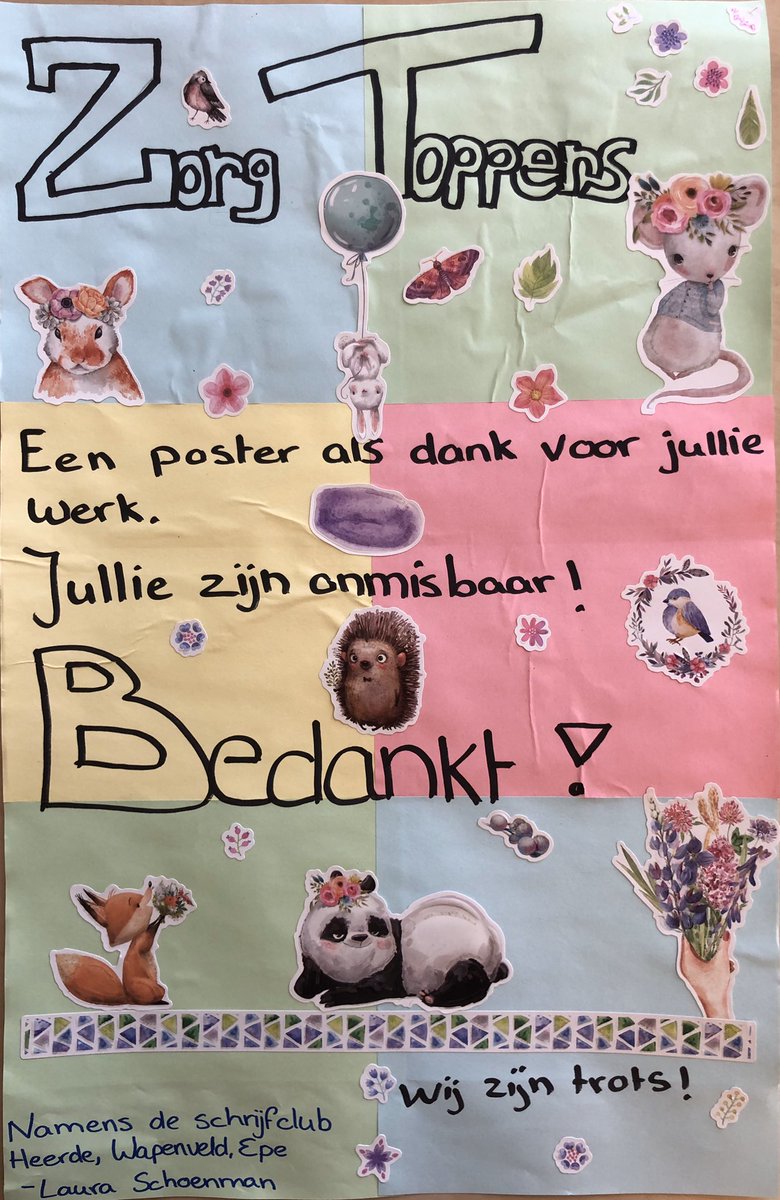 Zorg Toppers
Een poster als dank voor jullie
werk.
Jullie zijn onmisbaar!
Bedankt!
Wij zijn trots!
Namens de schrijfclub
Heerde, Wapenveld, Epe
- Laura Schoenman